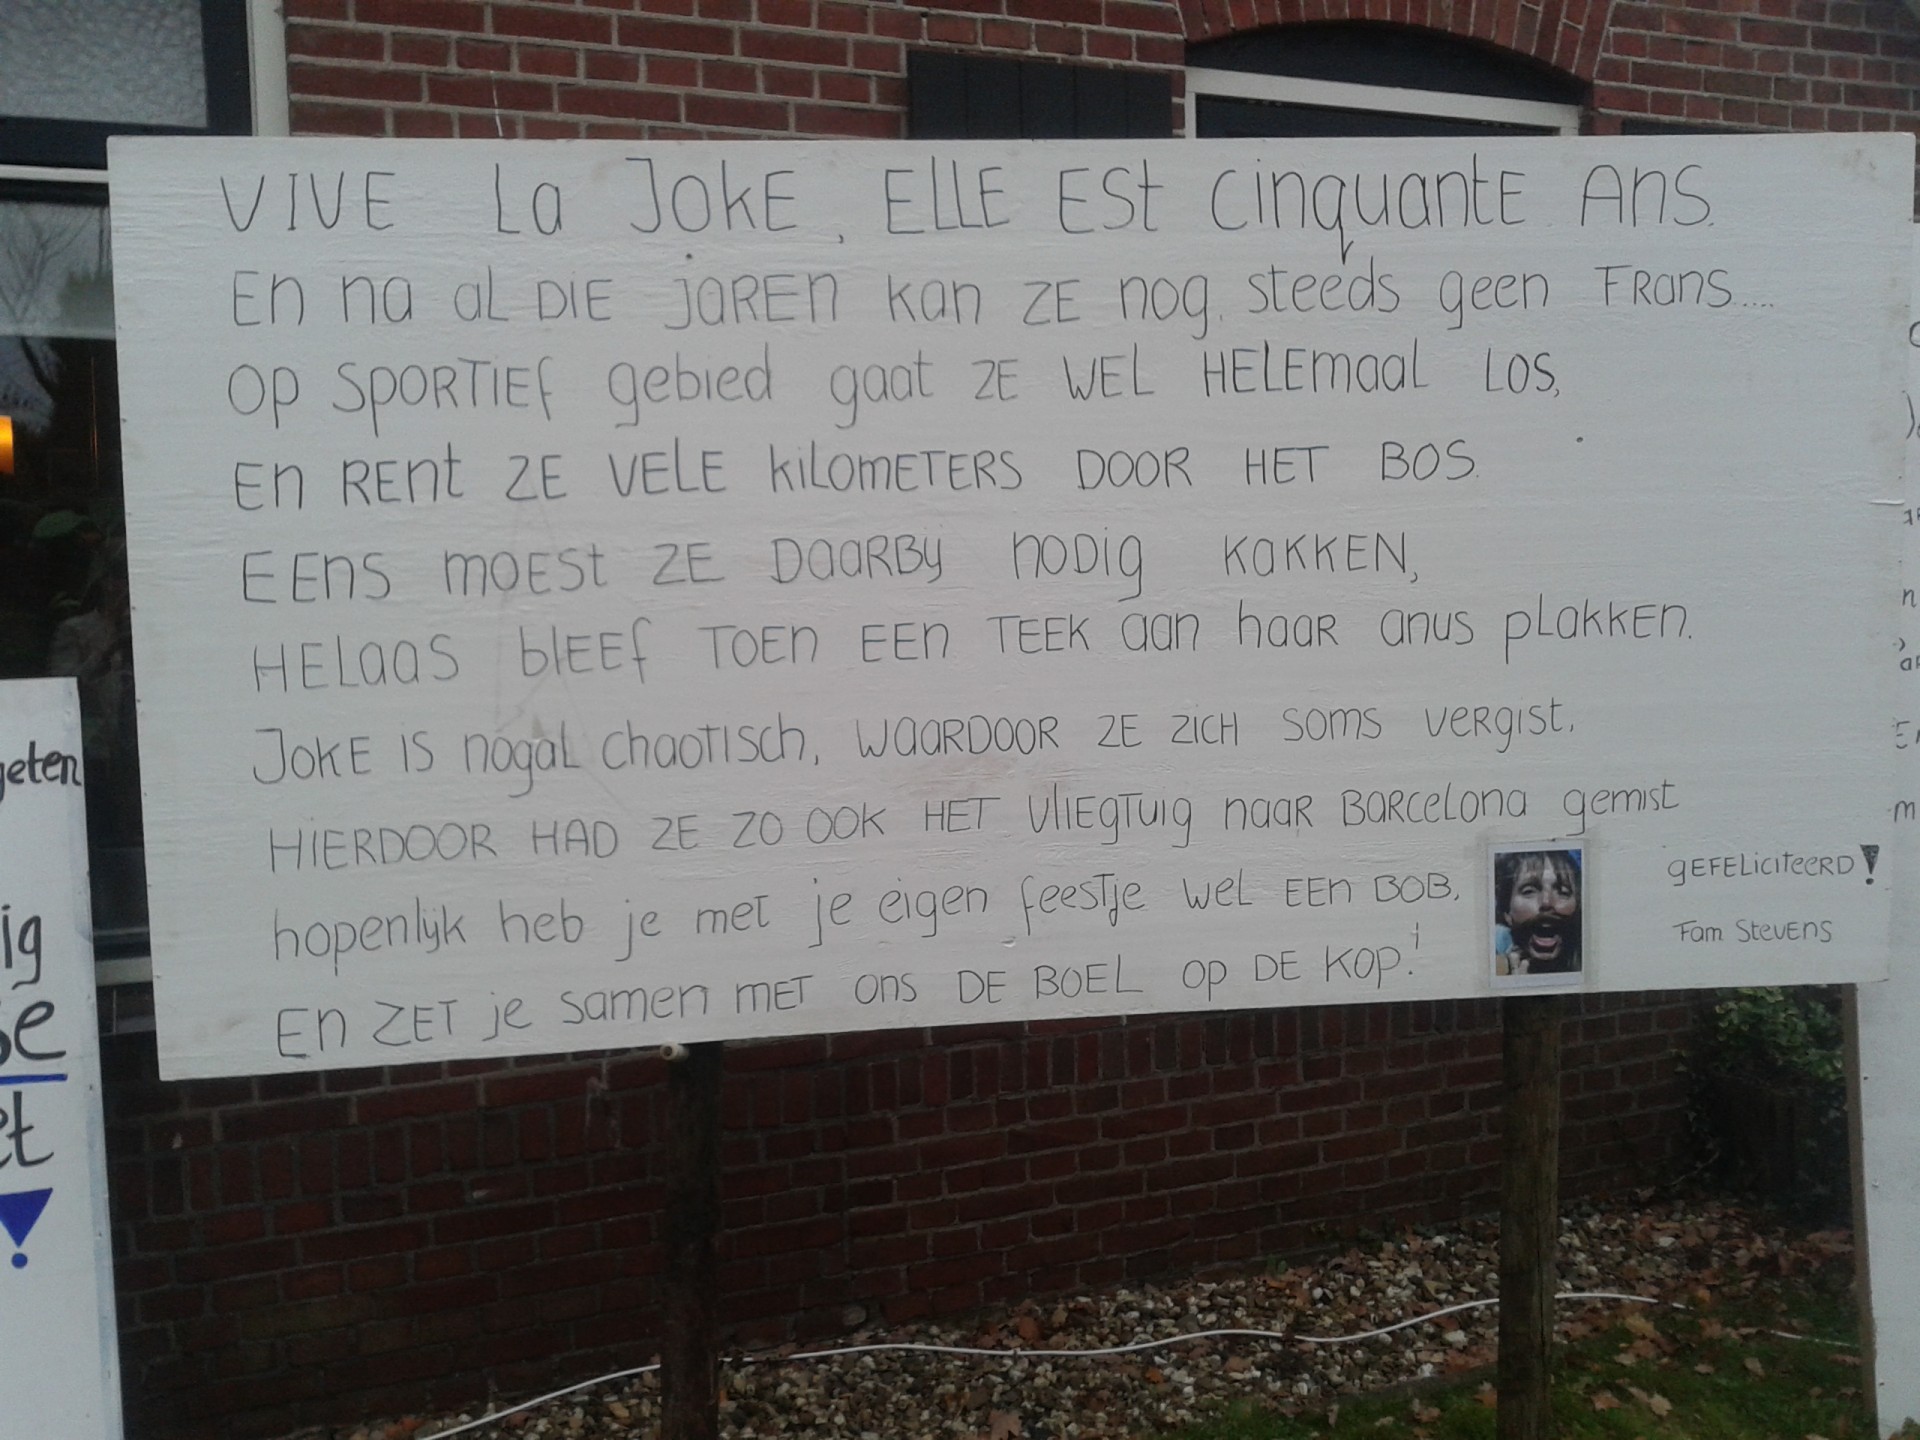 VIVE La JOKE, ELLE ESt cinquante Ans.
En na al DIE jaren kan ZE nog steeds geen Frans....
Op sportief gebied gaat ZE WEL HELEmaal LOS,
En RENt ZE VELE kilometers DOOR HET BOS.
EEns moEst ZE DaaRBy nodig KaKKEN,
HELaas blEEf TOEn EEn TEEK aan haar anus plaKKEn.
Joke is nogal chaotisch, waardoor ze zich soms vergist,
HiERDOOR HAD ZE ZO OOK HET Vliegtuig naar Barcelona gemist
hopenlijk heb je met je eigen feestje wel EEn BOB,
En ZET je samen met ons DE BOEL op DE KOP!
gEFELiciteerd!
Fam Stevens
geten
ig
se
et
!